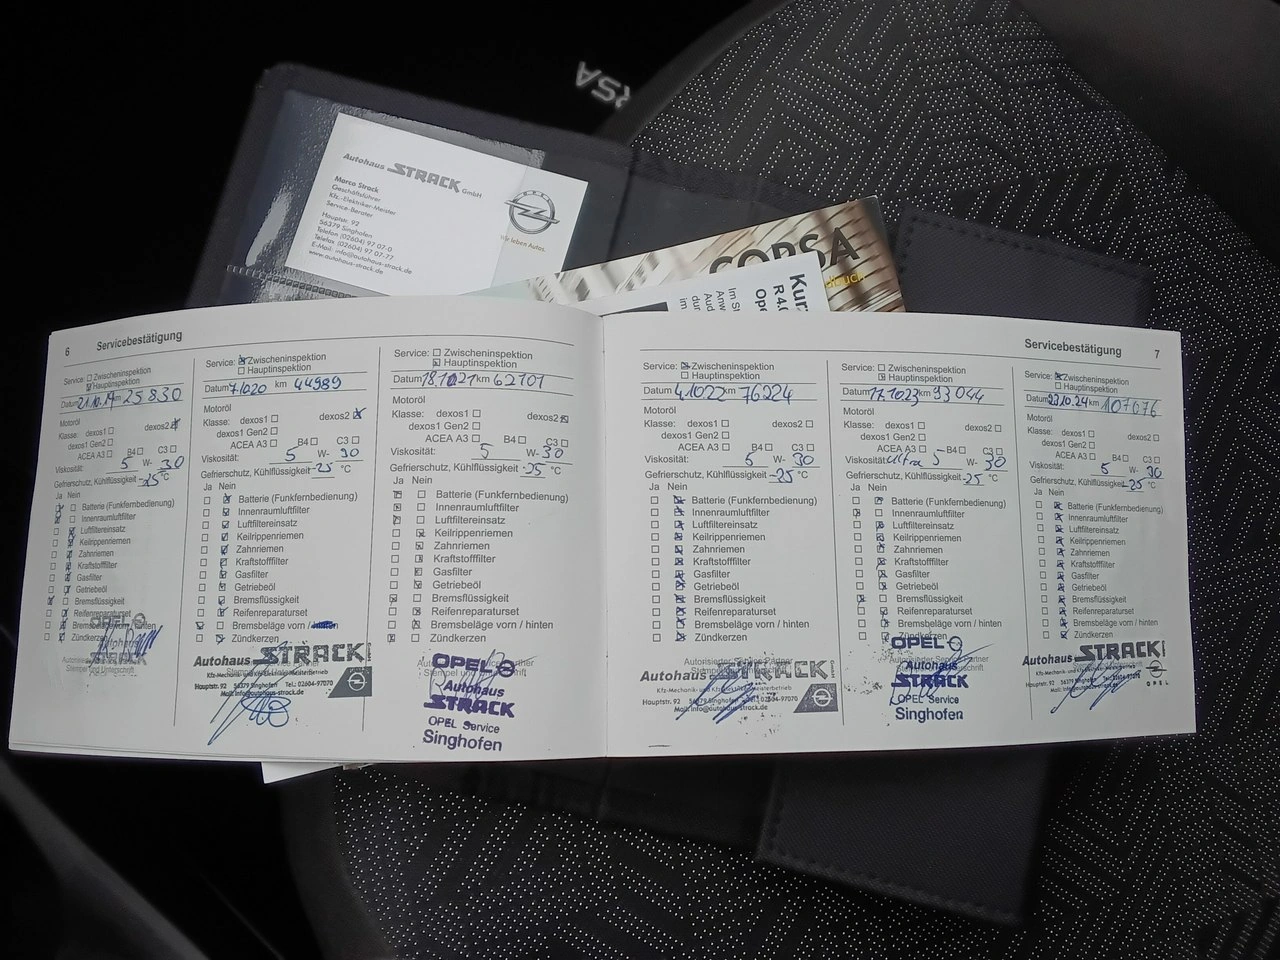 CORSA
Autohaus STRACK GmbH
Marco Strack
Geschäftsführer
Kfz.-Elektriker-Meister
Service-Berater
Hauptstr. 92
56379 Singhofen
Telefon (02604) 97 07-0
Telefax (02604) 97 07-77
E-Mail: info@autohaus-strack.de
www.autohaus-strack.de
OPEL
Wir leben Autos.
CORSA
Kur
R 4.0
Ope
6 Servicebestätigung
Service: Zwischeninspektion
Hauptinspektion
Datum 21.10.19 km 25830
Motoröl
Klasse: dexos1 dexos2
dexos1 Gen2
ACEA A3 B4 C3
Viskosität: 5 W- 30
Gefrierschutz, Kühlflüssigkeit -25 °C
Ja Nein
Batterie (Funkfernbedienung)
Innenraumluftfilter
Luftfiltereinsatz
Keilrippenriemen
Zahnriemen
Kraftstofffilter
Gasfilter
Getriebeöl
Bremsflüssigkeit
Reifenreparaturset
Bremsbeläge vorn / hinten
Zündkerzen
OPEL
Service: Zwischeninspektion
Hauptinspektion
Datum 7.10.20 km 44989
Motoröl
Klasse: dexos1 dexos2
dexos1 Gen2
ACEA A3 B4 C3
Viskosität: 5 W- 30
Gefrierschutz, Kühlflüssigkeit -25 °C
Ja Nein
Batterie (Funkfernbedienung)
Innenraumluftfilter
Luftfiltereinsatz
Keilrippenriemen
Zahnriemen
Kraftstofffilter
Gasfilter
Getriebeöl
Bremsflüssigkeit
Reifenreparaturset
Bremsbeläge vorn /
Zündkerzen
Autohaus STRACK
Kfz-Mechanik- und Kfz-Elektrik-Meisterbetrieb
Hauptstr. 92 56379 Singhofen Tel.: 02604-97070
Mail: info@autohaus-strack.de
Service: Zwischeninspektion
Hauptinspektion
Datum 18.10.21 km 62101
Motoröl
Klasse: dexos1 dexos2
dexos1 Gen2
ACEA A3 B4 C3
Viskosität: 5 W- 30
Gefrierschutz, Kühlflüssigkeit -25 °C
Ja Nein
Batterie (Funkfernbedienung)
Innenraumluftfilter
Luftfiltereinsatz
Keilrippenriemen
Zahnriemen
Kraftstofffilter
Gasfilter
Getriebeöl
Bremsflüssigkeit
Reifenreparaturset
Bremsbeläge vorn / hinten
Zündkerzen
OPEL
Autohaus
STRACK
OPEL Service
Singhofen
Servicebestätigung 7
Service: Zwischeninspektion
Hauptinspektion
Datum 4.10.22 km 76224
Motoröl
Klasse: dexos1 dexos2
dexos1 Gen2
ACEA A3 B4 C3
Viskosität: 5 W- 30
Gefrierschutz, Kühlflüssigkeit -25 °C
Ja Nein
Batterie (Funkfernbedienung)
Innenraumluftfilter
Luftfiltereinsatz
Keilrippenriemen
Zahnriemen
Kraftstofffilter
Gasfilter
Getriebeöl
Bremsflüssigkeit
Reifenreparaturset
Bremsbeläge vorn / hinten
Zündkerzen
Autohaus STRACK
Kfz-Mechanik- und Kfz-Elektrik-Meisterbetrieb
Hauptstr. 92 56379 Singhofen Tel.: 02604-97070
Mail: info@autohaus-strack.de
Service: Zwischeninspektion
Hauptinspektion
Datum 17.10.23 km 93044
Motoröl
Klasse: dexos1 dexos2
dexos1 Gen2
ACEA A3 B4 C3
Viskosität: Ultra 5 W- 30
Gefrierschutz, Kühlflüssigkeit -25 °C
Ja Nein
Batterie (Funkfernbedienung)
Innenraumluftfilter
Luftfiltereinsatz
Keilrippenriemen
Zahnriemen
Kraftstofffilter
Gasfilter
Getriebeöl
Bremsflüssigkeit
Reifenreparaturset
Bremsbeläge vorn / hinten
Zündkerzen
OPEL
Autohaus
STRACK
OPEL Service
Singhofen
Service: Zwischeninspektion
Hauptinspektion
Datum 23.10.24 km 107676
Motoröl
Klasse: dexos1 dexos2
dexos1 Gen2
ACEA A3 B4 C3
Viskosität: 5 W- 30
Gefrierschutz, Kühlflüssigkeit -25 °C
Ja Nein
Batterie (Funkfernbedienung)
Innenraumluftfilter
Luftfiltereinsatz
Keilrippenriemen
Zahnriemen
Kraftstofffilter
Gasfilter
Getriebeöl
Bremsflüssigkeit
Reifenreparaturset
Bremsbeläge vorn / hinten
Zündkerzen
Autohaus STRACK
OPEL